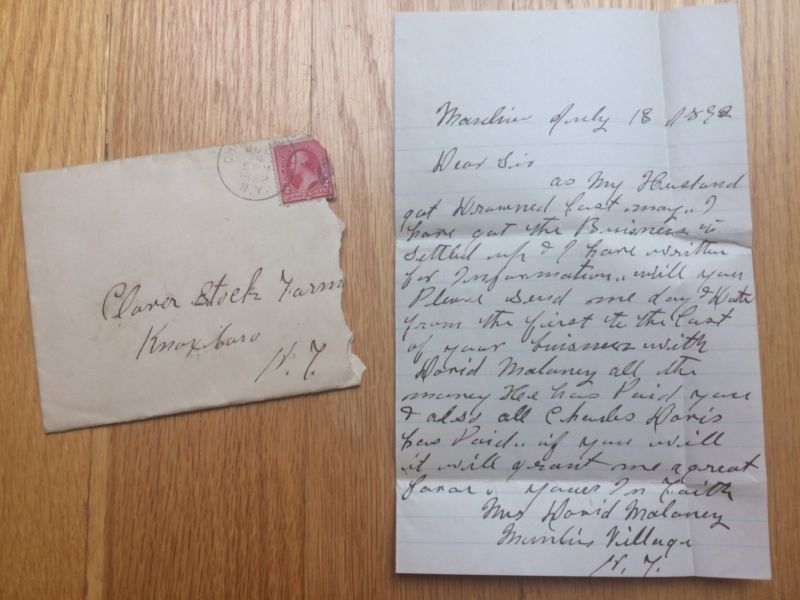 CH
5 PM
N.Y.
Clover Stock Farm
Knoxboro
N. Y.
July 18 1892
Dear Sir
as My Husband
got Drowned last may.. I
have got the Buisness to
settled up & I have written
for Information.. will you
Please send me day & Date
from the first to the last
of your buisness with
David Maloney all the
money He has Paid you
& also all Charles Davis
has Paid.. if you will
it will grant me a great
favor. yours In Faith
Mrs David Maloney
Manlius Village
N. Y.